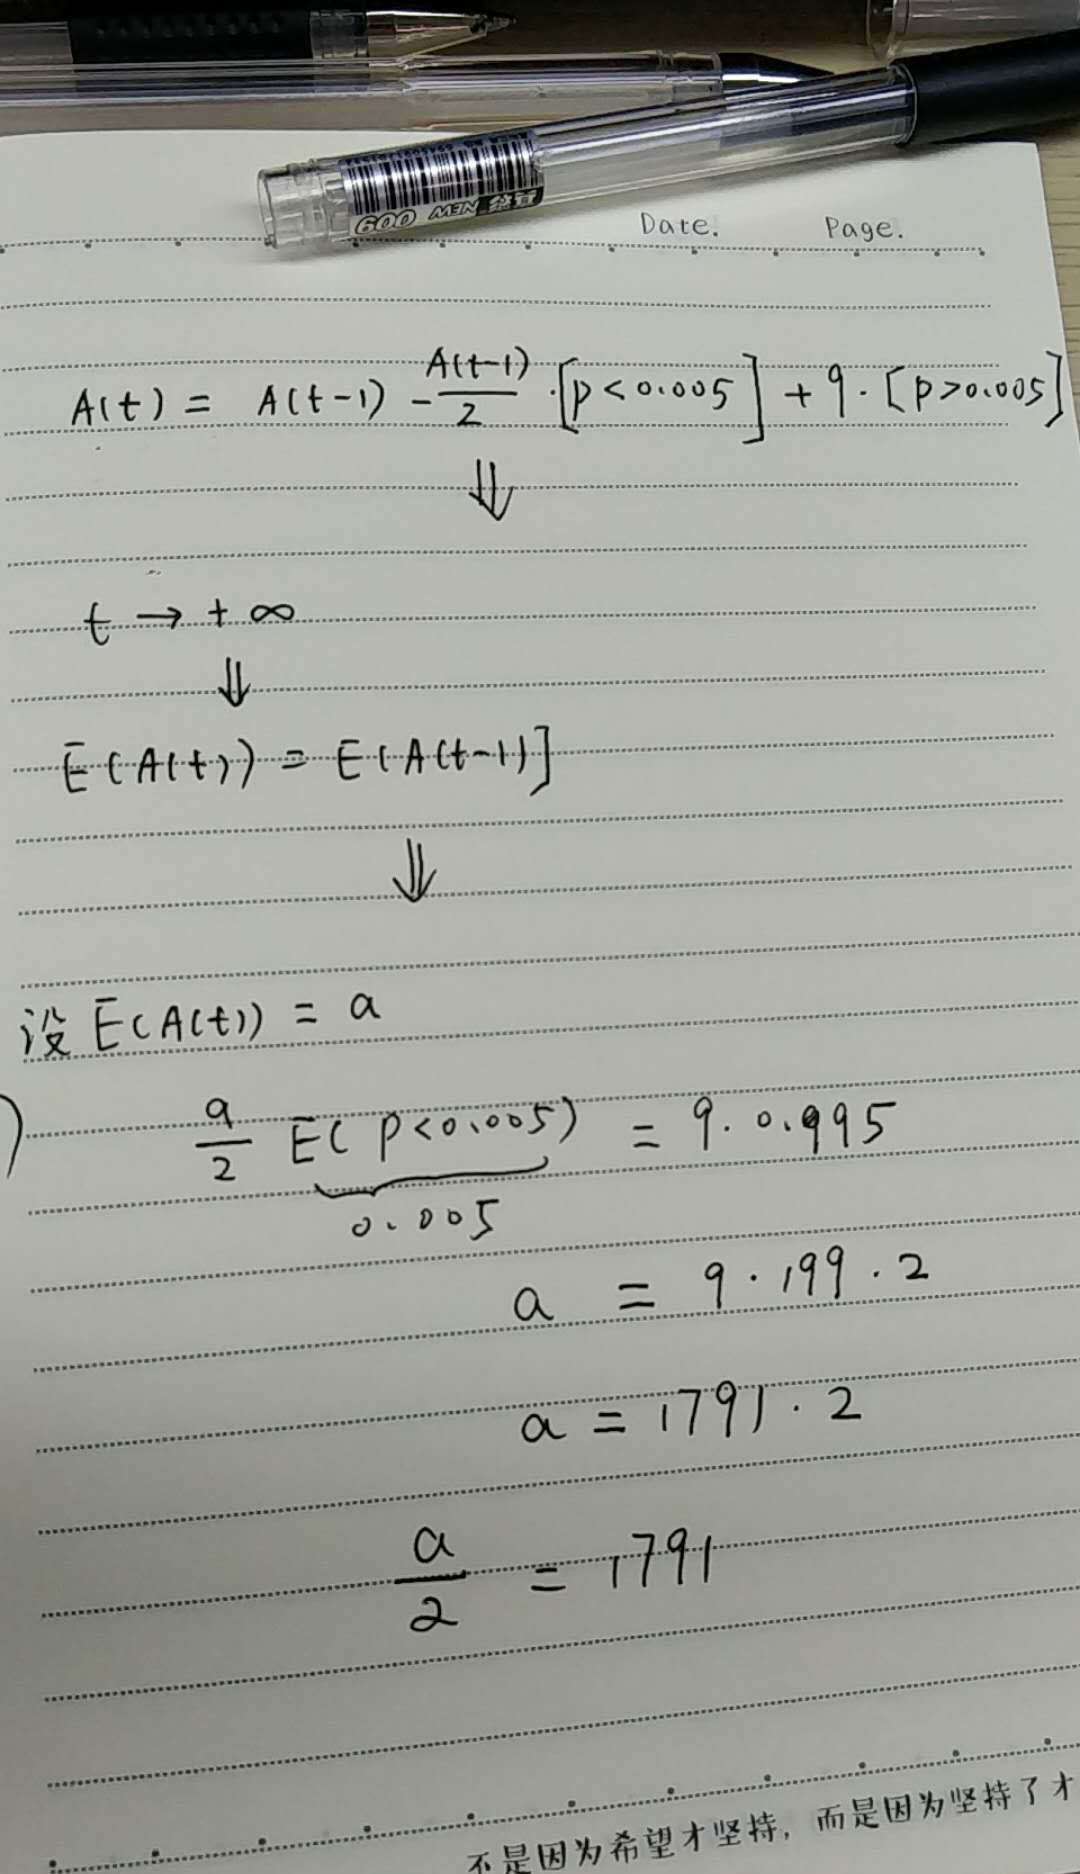 600 NEW
Date. Page.
A(t) = A(t-1) - A(t-1)/2 · [p < 0.005] + 9 · [p > 0.005]
⇓
t → + ∞
⇓
E(A(t)) = E(A(t-1)]
⇓
设 E(A(t)) = a
a/2 E(p<0.005) = 9 · 0.995
0.005
a = 9 · 199 · 2
a = 1791 · 2
a/2 = 1791
不是因为希望才坚持，而是因为坚持了才